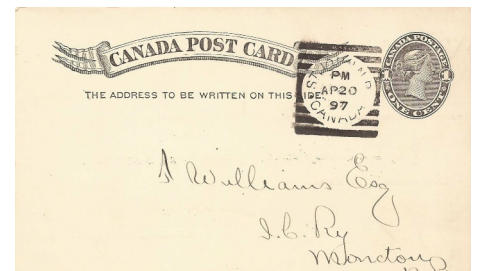 CANADA POST CARD
THE ADDRESS TO BE WRITTEN ON THIS SIDE.
ST JOHN N.B.
PM
AP 20
97
CANADA
CANADA POSTAGE
1 1
ONE CENT
Williams Esq
I.C. Ry
Moncton